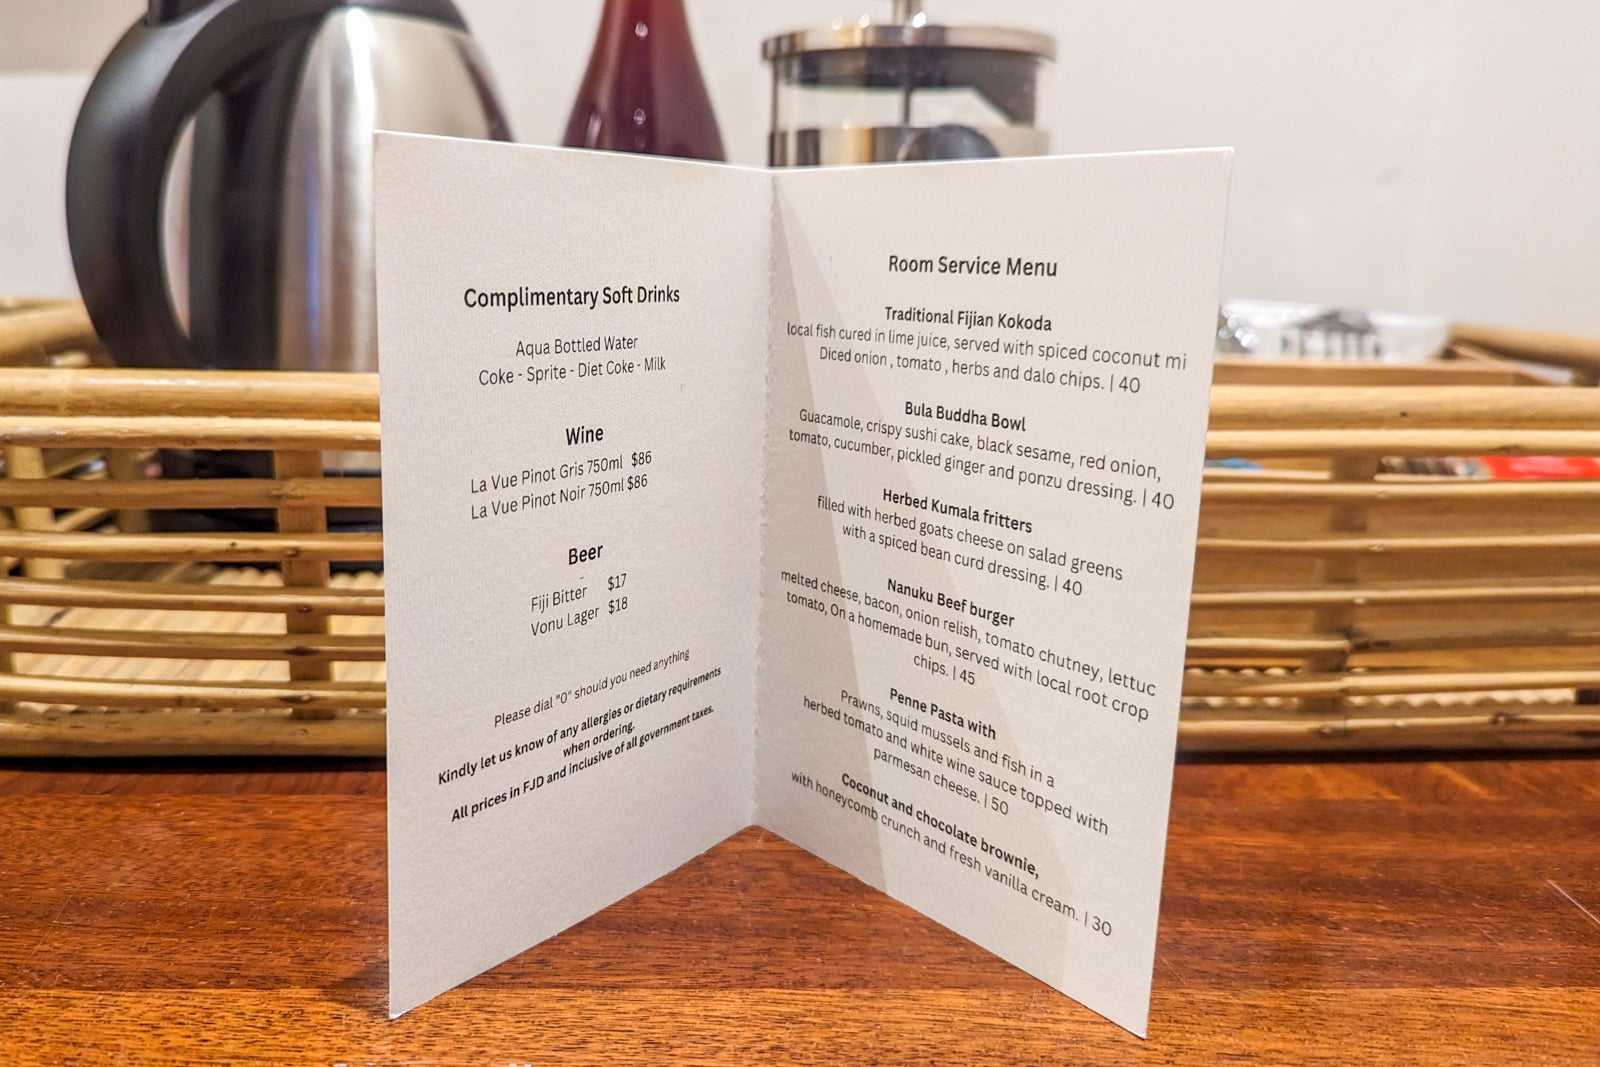 Complimentary Soft Drinks
Aqua Bottled Water
Coke - Sprite - Diet Coke - Milk
Wine
La Vue Pinot Gris 750ml $86
La Vue Pinot Noir 750ml $86
Beer
-
Fiji Bitter $17
Vonu Lager $18
Please dial "0" should you need anything
Kindly let us know of any allergies or dietary requirements
when ordering.
All prices in FJD and inclusive of all government taxes.
Room Service Menu
Traditional Fijian Kokoda
local fish cured in lime juice, served with spiced coconut mi
Diced onion , tomato , herbs and dalo chips. | 40
Bula Buddha Bowl
Guacamole, crispy sushi cake, black sesame, red onion,
tomato, cucumber, pickled ginger and ponzu dressing. | 40
Herbed Kumala fritters
filled with herbed goats cheese on salad greens
with a spiced bean curd dressing. | 40
Nanuku Beef burger
melted cheese, bacon, onion relish, tomato chutney, lettuc
tomato, On a homemade bun, served with local root crop
chips. | 45
Penne Pasta with
Prawns, squid mussels and fish in a
herbed tomato and white wine sauce topped with
parmesan cheese. | 50
Coconut and chocolate brownie,
with honeycomb crunch and fresh vanilla cream. | 30